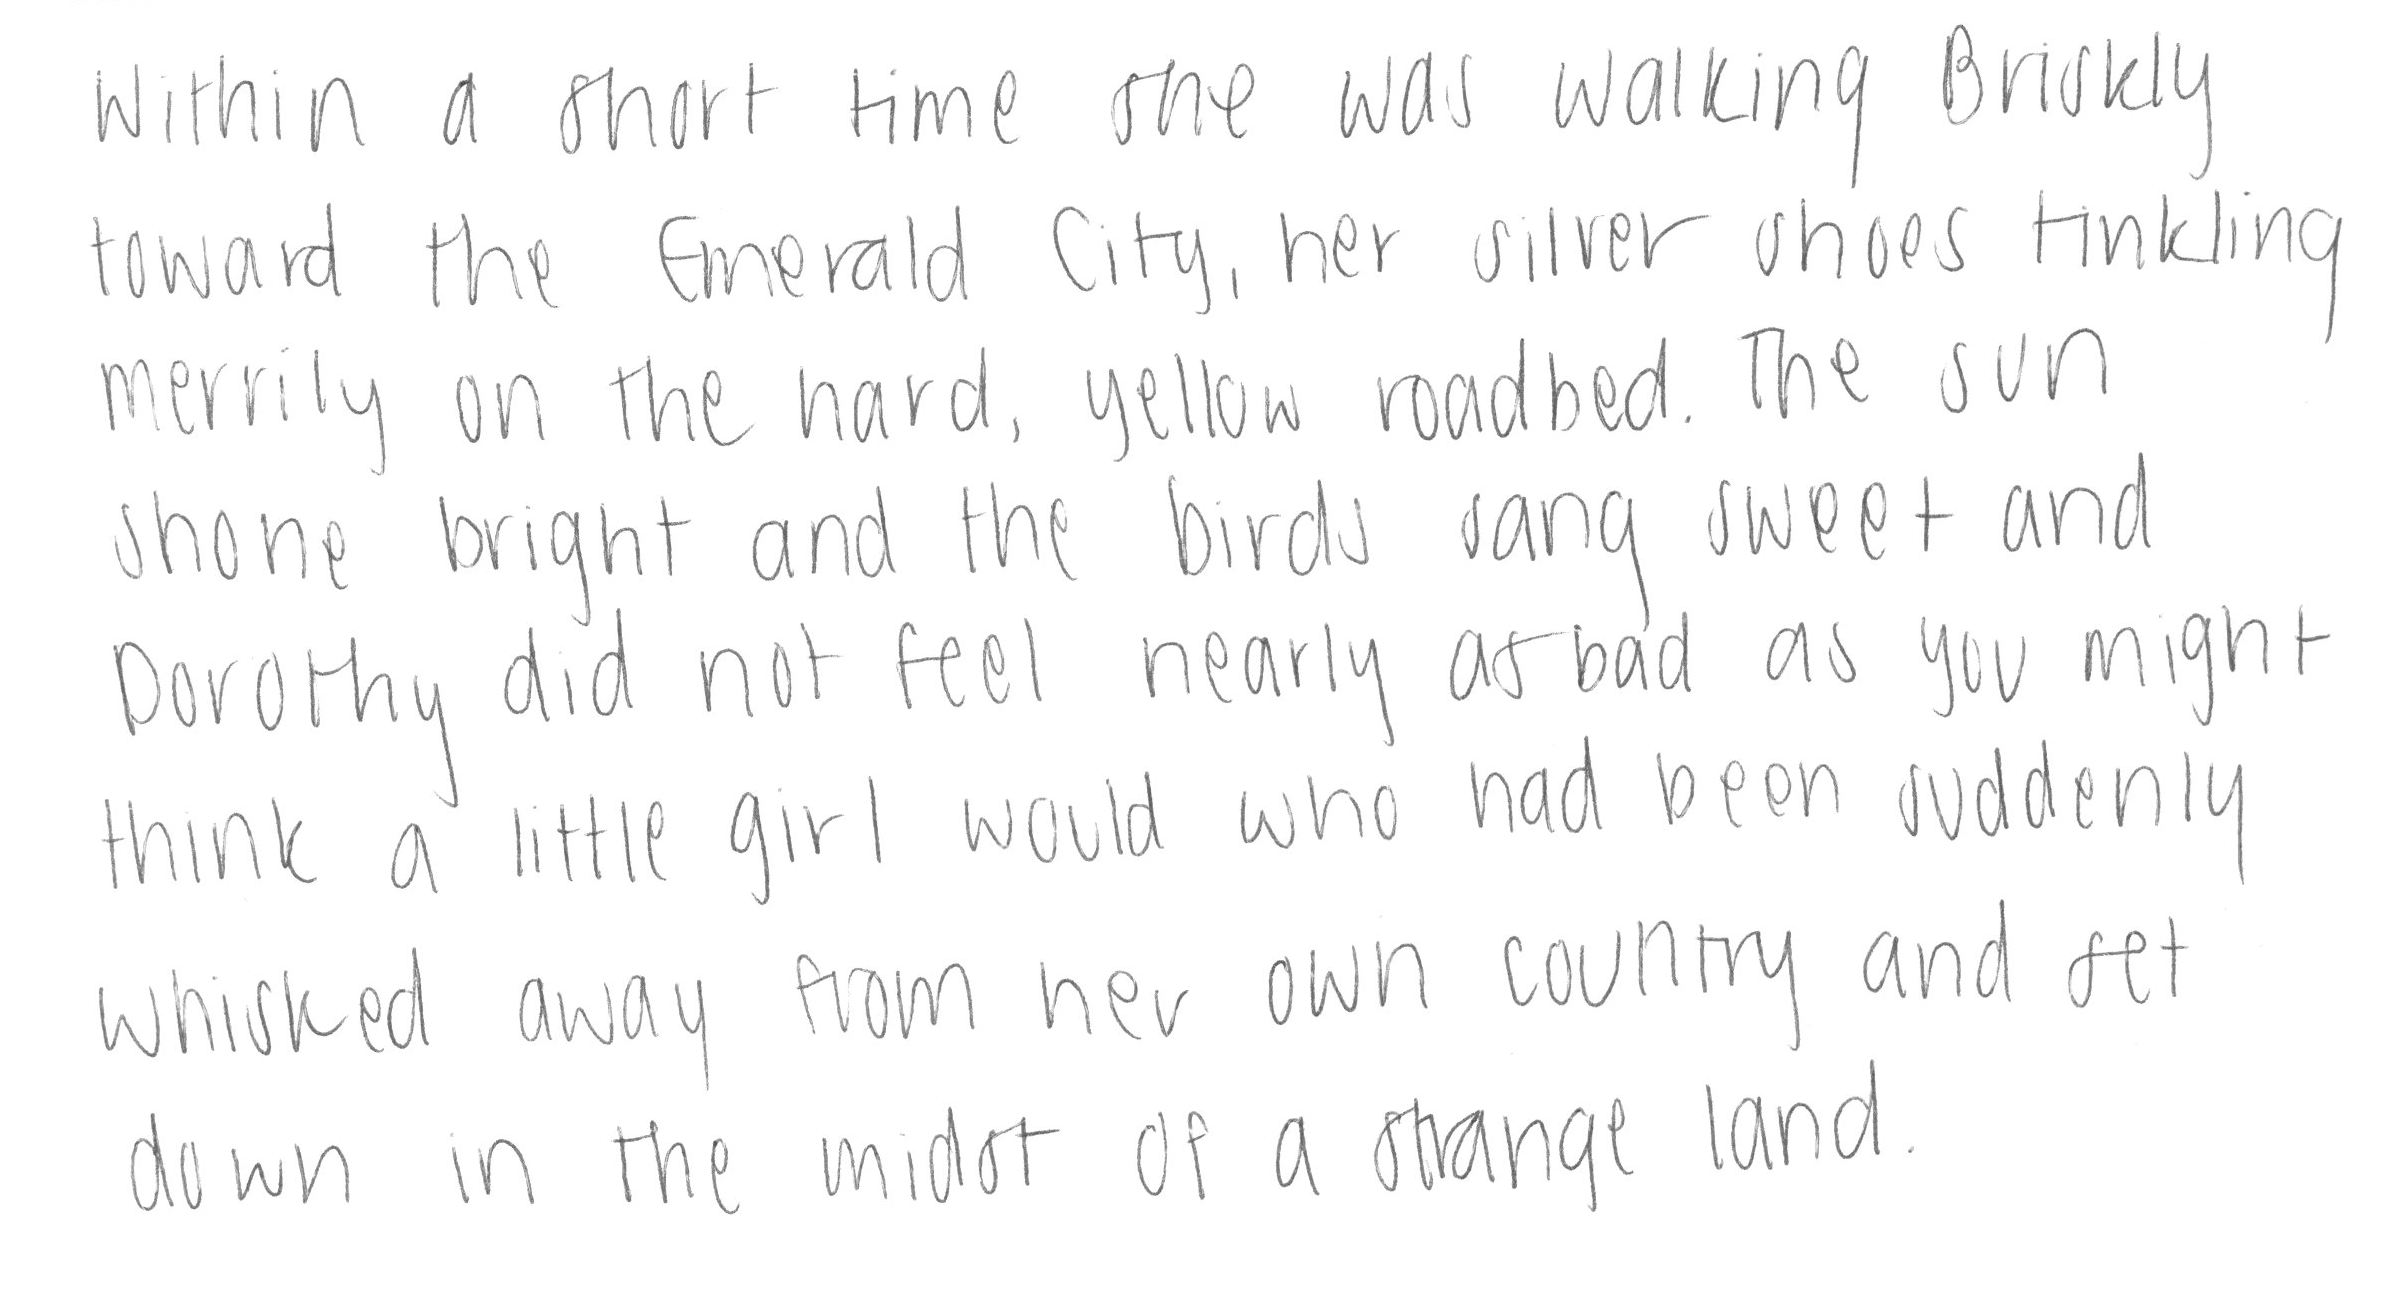 Within a short time she was walking Briskly
toward the Emerald City, her silver shoes tinkling
merrily on the hard, yellow roadbed. The sun
shone bright and the birds sang sweet and
Dorothy did not feel nearly as bad as you might
think a little girl would who had been suddenly
whisked away from her own country and set
down in the midst of a strange land.